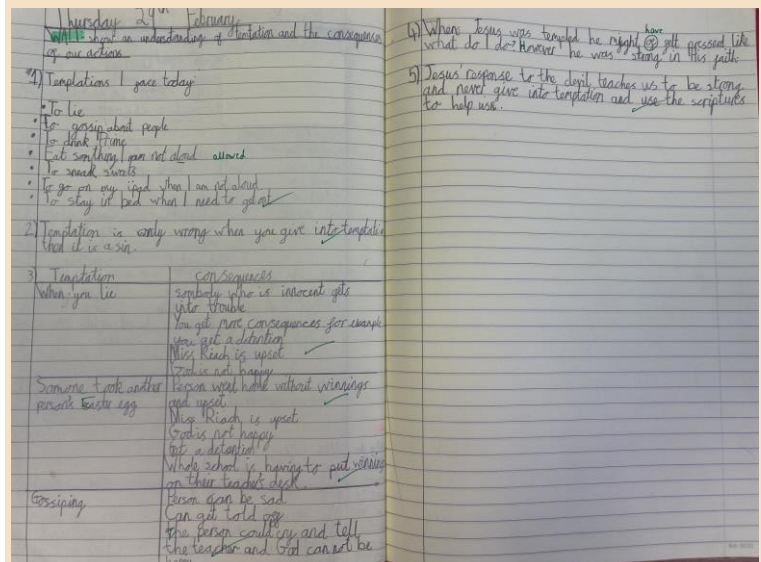 Thursday 29th February
WALT: show an understanding of temtation and the consequences
of our actions
1) Temptations I face today
• To lie
• To gossip about people
• To drink Prime
• Eat somthing I am not aloud allowed
• To sneak sweets
• To go on my ipad when I am not aloud.
• To stay in bed when I need to get out
2) Temptation is only wrong when you give into temptation
than it is a sin.
3) Temptation consequences
When you lie
sombody who is innocent gets
into trouble
You get more consequences for example
you get a detention
Miss Riach is upset
God is not happy
Somone took another
person's Easter egg
Person went home without winnings
and upset
Miss Riach is upset
God is not happy
Got a detention
Whole school is having to put winnings
on their teacher's desk.
Gossiping
Person can be sad
Can get told off
the person could cry and tell
the teacher and God can not be
4) When Jesus was tempted he might have got pressed like
what do I do? However he was strong in His faith
5) Jesus' response to the devil teaches us to be strong
and never give into temptation and use the scriptures
to help us.